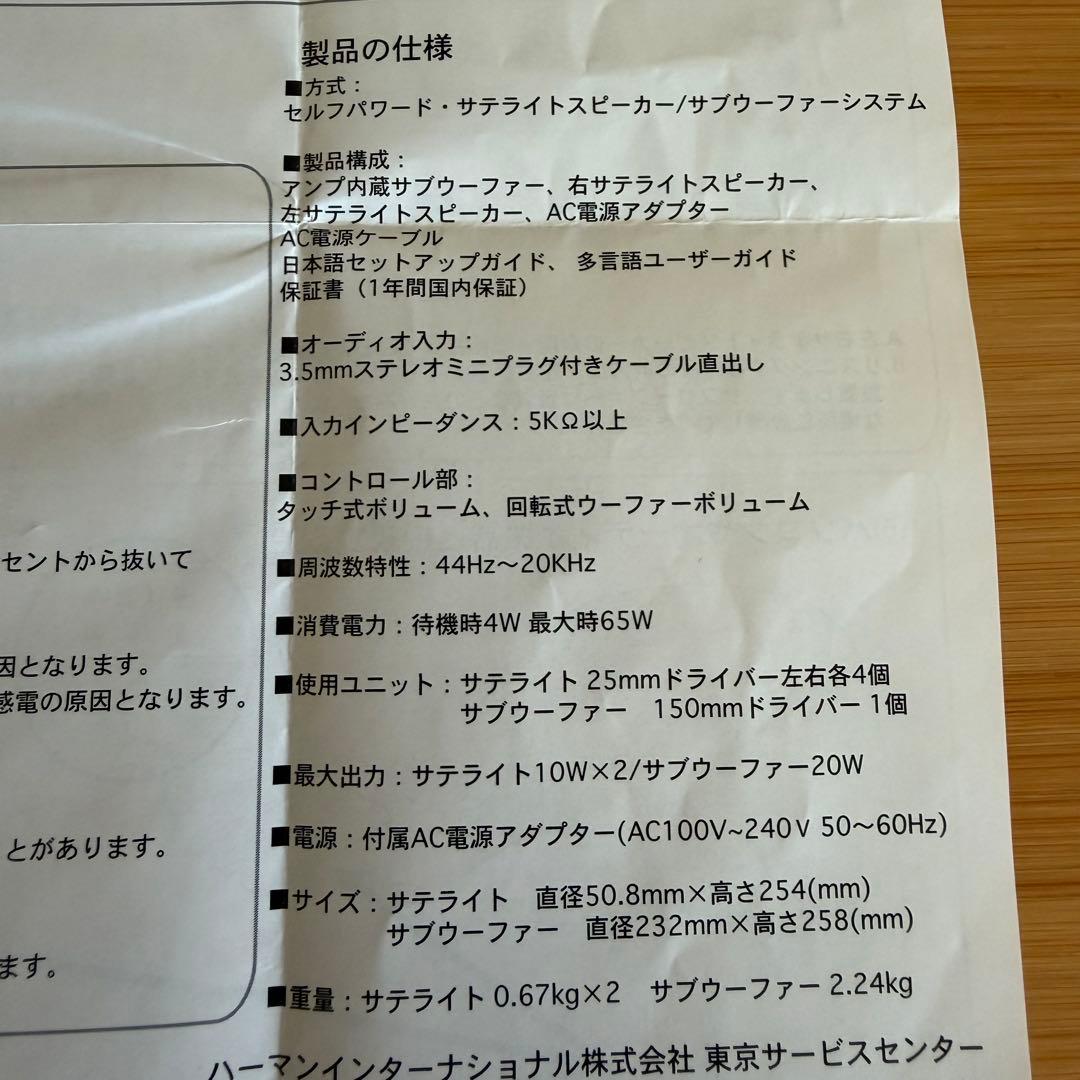 製品の仕様
■方式：
セルフパワード・サテライトスピーカー/サブウーファーシステム
■製品構成：
アンプ内蔵サブウーファー、右サテライトスピーカー、
左サテライトスピーカー、AC電源アダプター
AC電源ケーブル
日本語セットアップガイド、 多言語ユーザーガイド
保証書（1年間国内保証）
■オーディオ入力：
3.5mmステレオミニプラグ付きケーブル直出し
■入力インピーダンス：5KΩ以上
■コントロール部：
タッチ式ボリューム、回転式ウーファーボリューム
■周波数特性：44Hz～20KHz
■消費電力：待機時4W 最大時65W
■使用ユニット：サテライト 25mmドライバー左右各4個
サブウーファー　150mmドライバー 1個
■最大出力：サテライト10W×2/サブウーファー20W
■電源：付属AC電源アダプター(AC100V~240V 50～60Hz)
■サイズ：サテライト　直径50.8mm×高さ254(mm)
サブウーファー　直径232mm×高さ258(mm)
■重量：サテライト 0.67kg×2　サブウーファー 2.24kg
ハーマンインターナショナル株式会社 東京サービスセンター
セントから抜いて
因となります。
感電の原因となります。
とがあります。
ます。